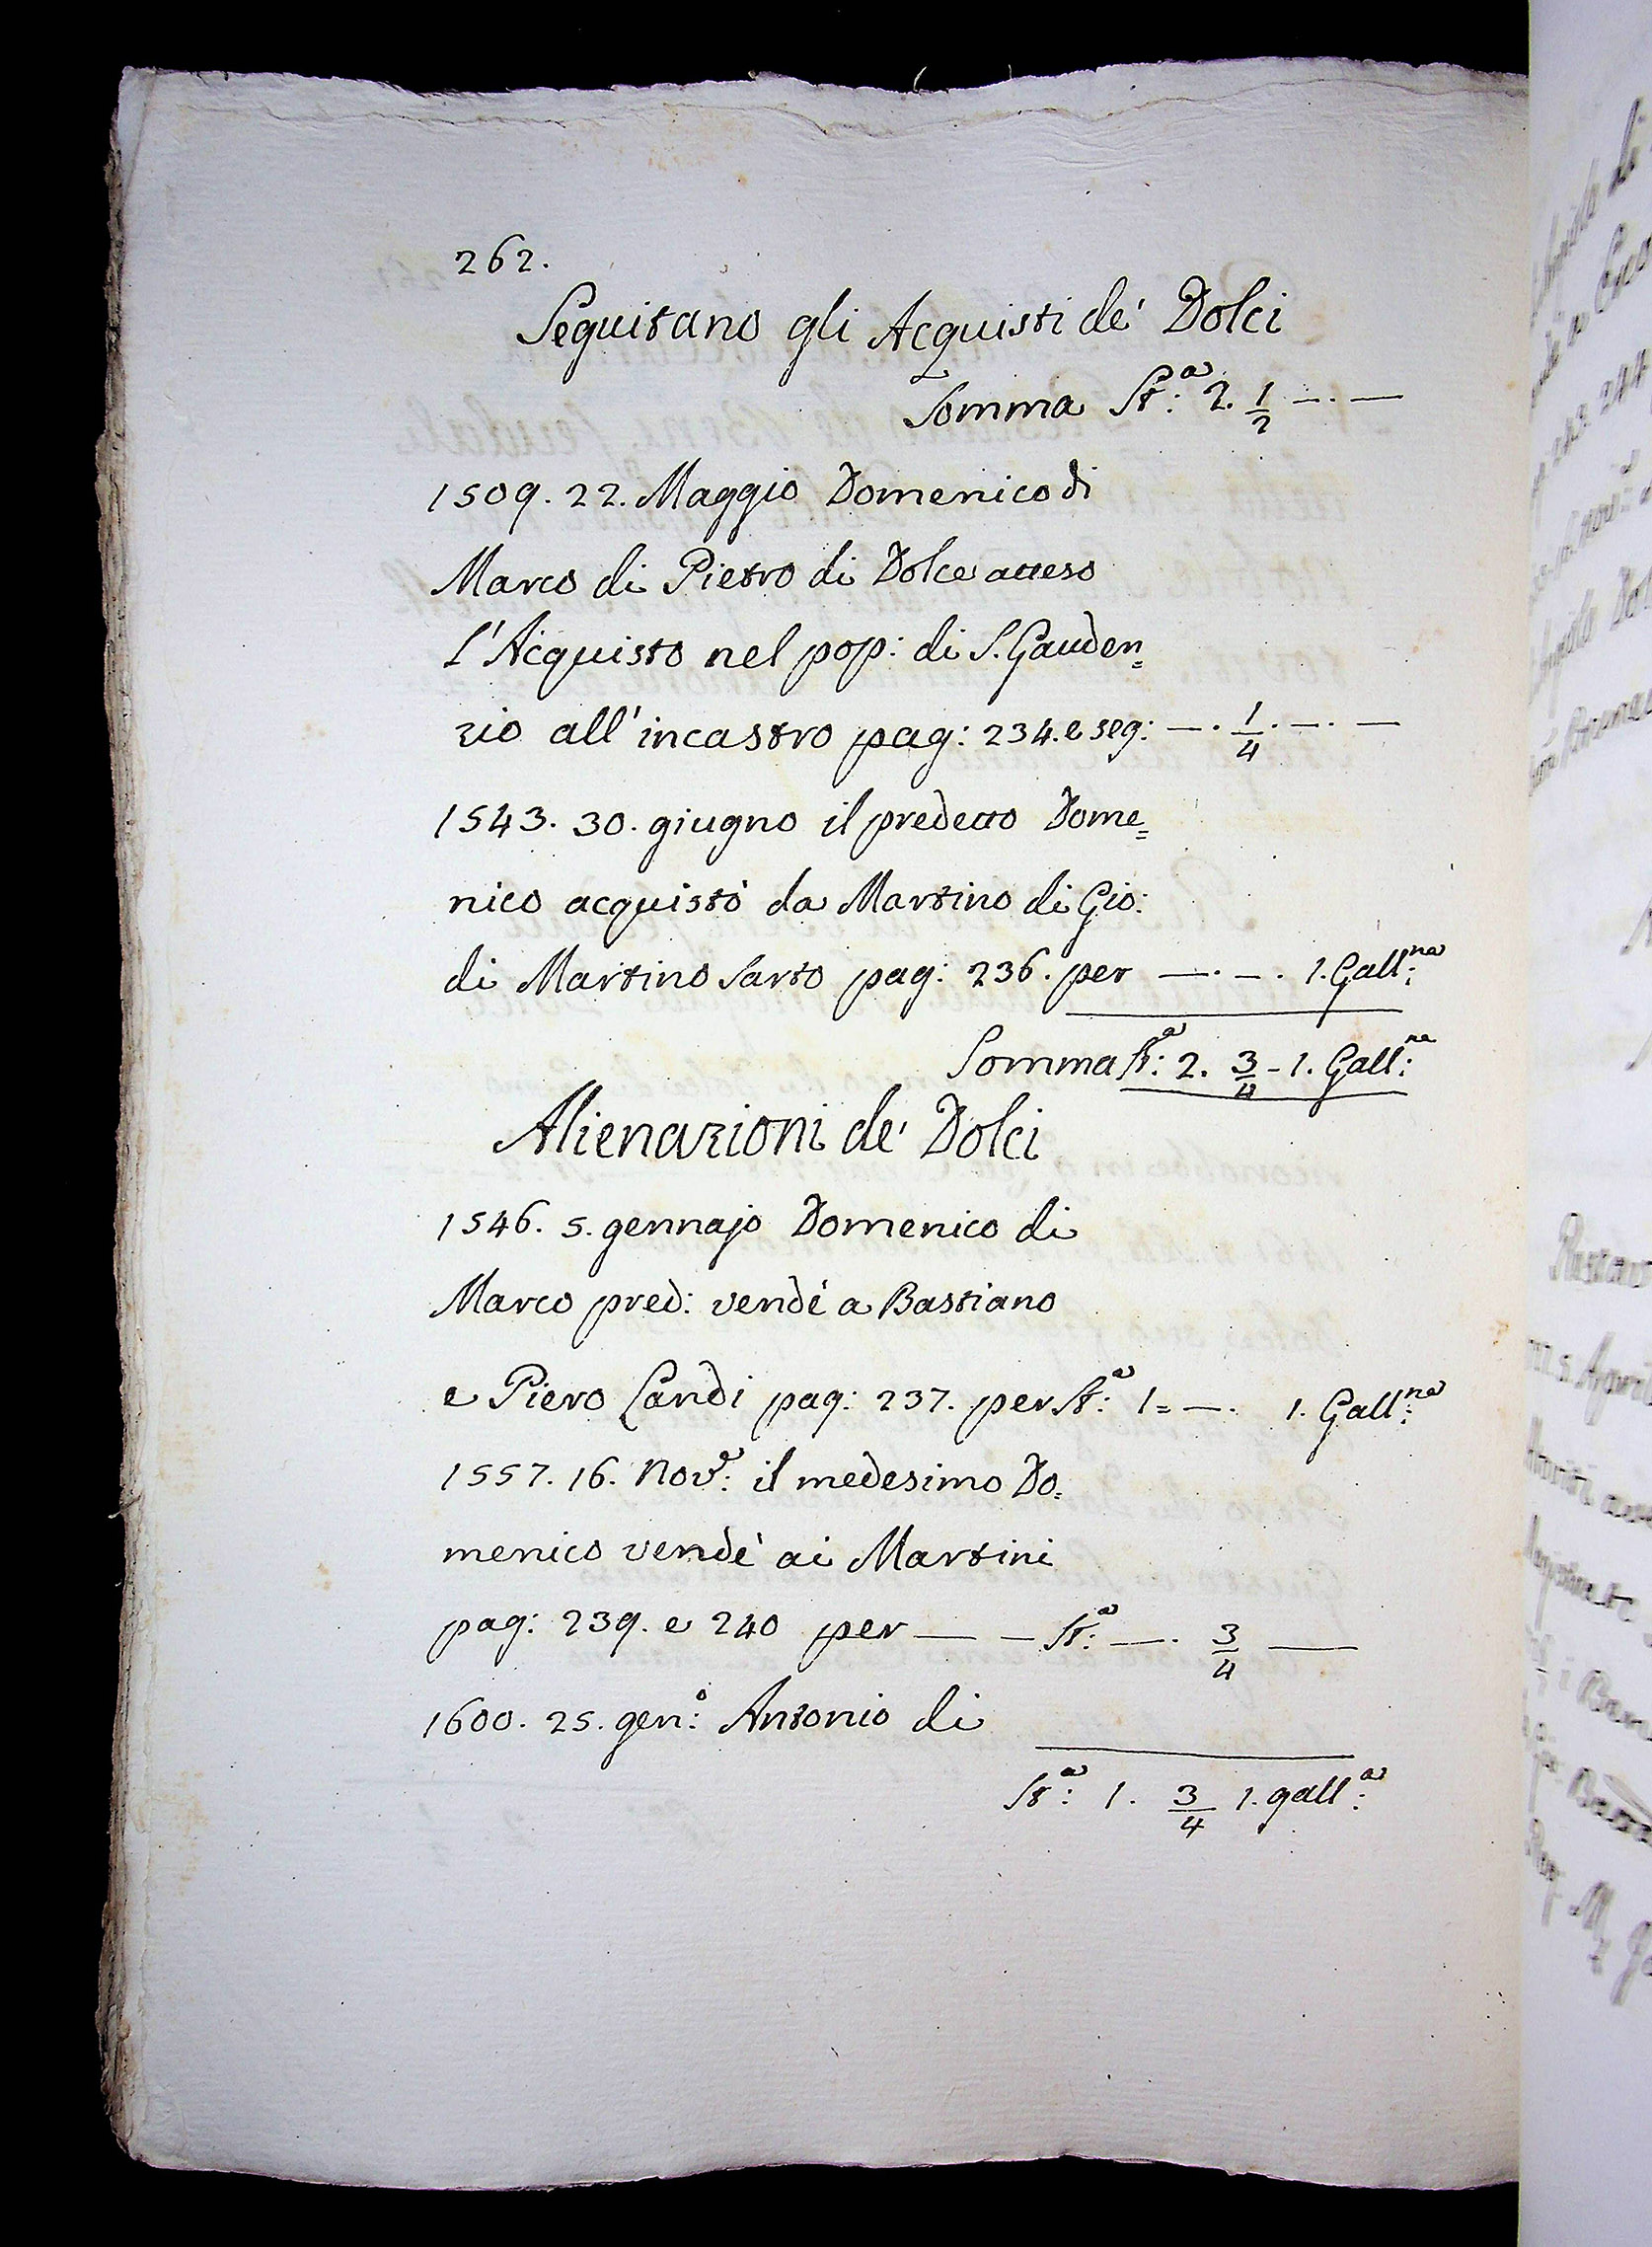 262.
Seguitano gli Acquisti de' Dolci
Somma St:ª 2. 1/2 —. —
1509. 22. Maggio Domenico di
Marco di Pietro di Dolce atteso
l'Acquisto nel pop: di S. Gauden=
zio all'incastro pag: 234. e seg: —. 1/4. —. —
1543. 30. giugno il predetto Dome=
nico acquistò da Martino di Gio:
di Martino Sarto pag: 236. per —. —. 1. Gall:na
Somma St:ª 2. 3/4 - 1. Gall:na
Alienazioni de' Dolci
1546. 5. gennajo Domenico di
Marco pred: vendé a Bastiano
e Piero Landi pag: 237. per St:ª 1= —. 1. Gall:na
1557. 16. Nov:e il medesimo Do=
menico vendé ai Martini
pag: 239. e 240 per — — St:ª —. 3/4 —
1600. 25. gen:o Antonio di
St:ª 1. 3/4 1. gall:a